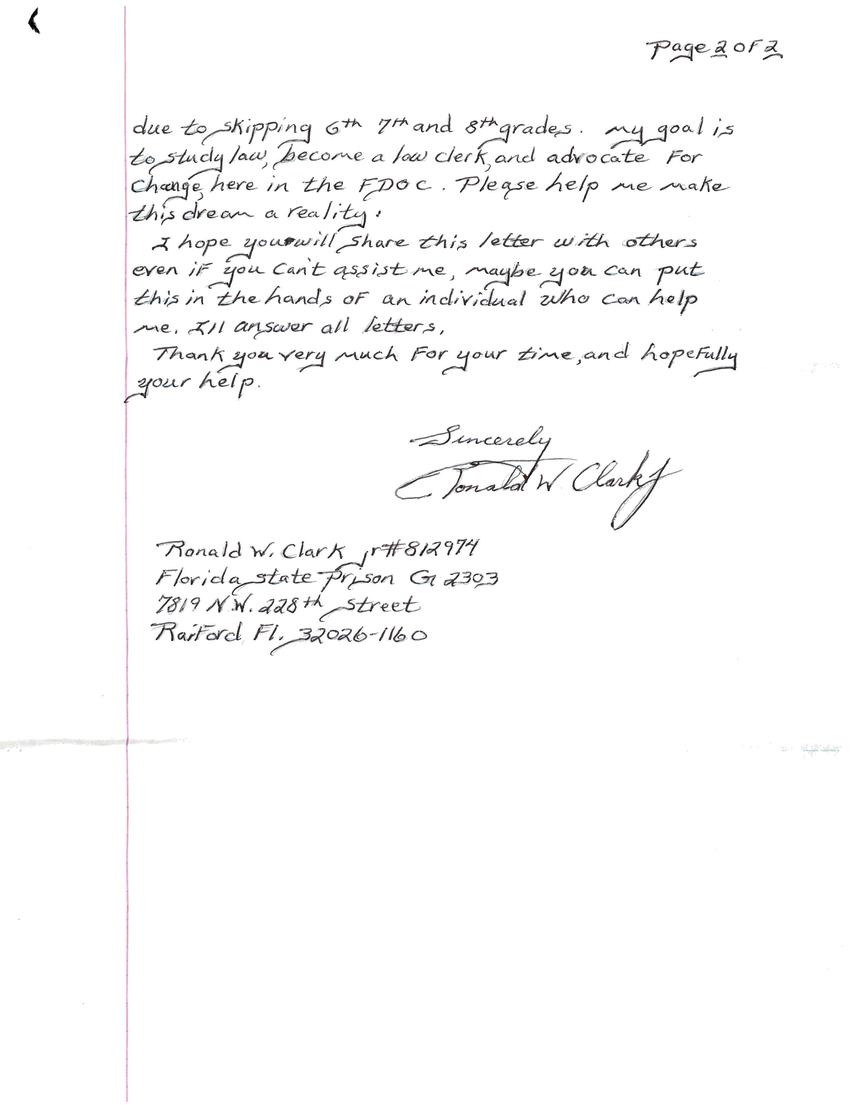 Page 2 OF 2
due to skipping 6th 7th and 8th grades. my goal is
to study law, become a law clerk, and advocate For
Change, here in the FDOC. Please help me make
this dream a reality.
I hope you will share this letter with others
even iF you Can't assist me, maybe you can put
this in the hands oF an individual who can help
me. I'll answer all letters,
Thank you very much For your time, and hopeFully
your help.
Sincerely
Ronald W Clark Jr
Ronald W. Clark jr #812974
Florida state Prison G 2303
7819 N.W. 228th street
RaiFord Fl. 32026-1160